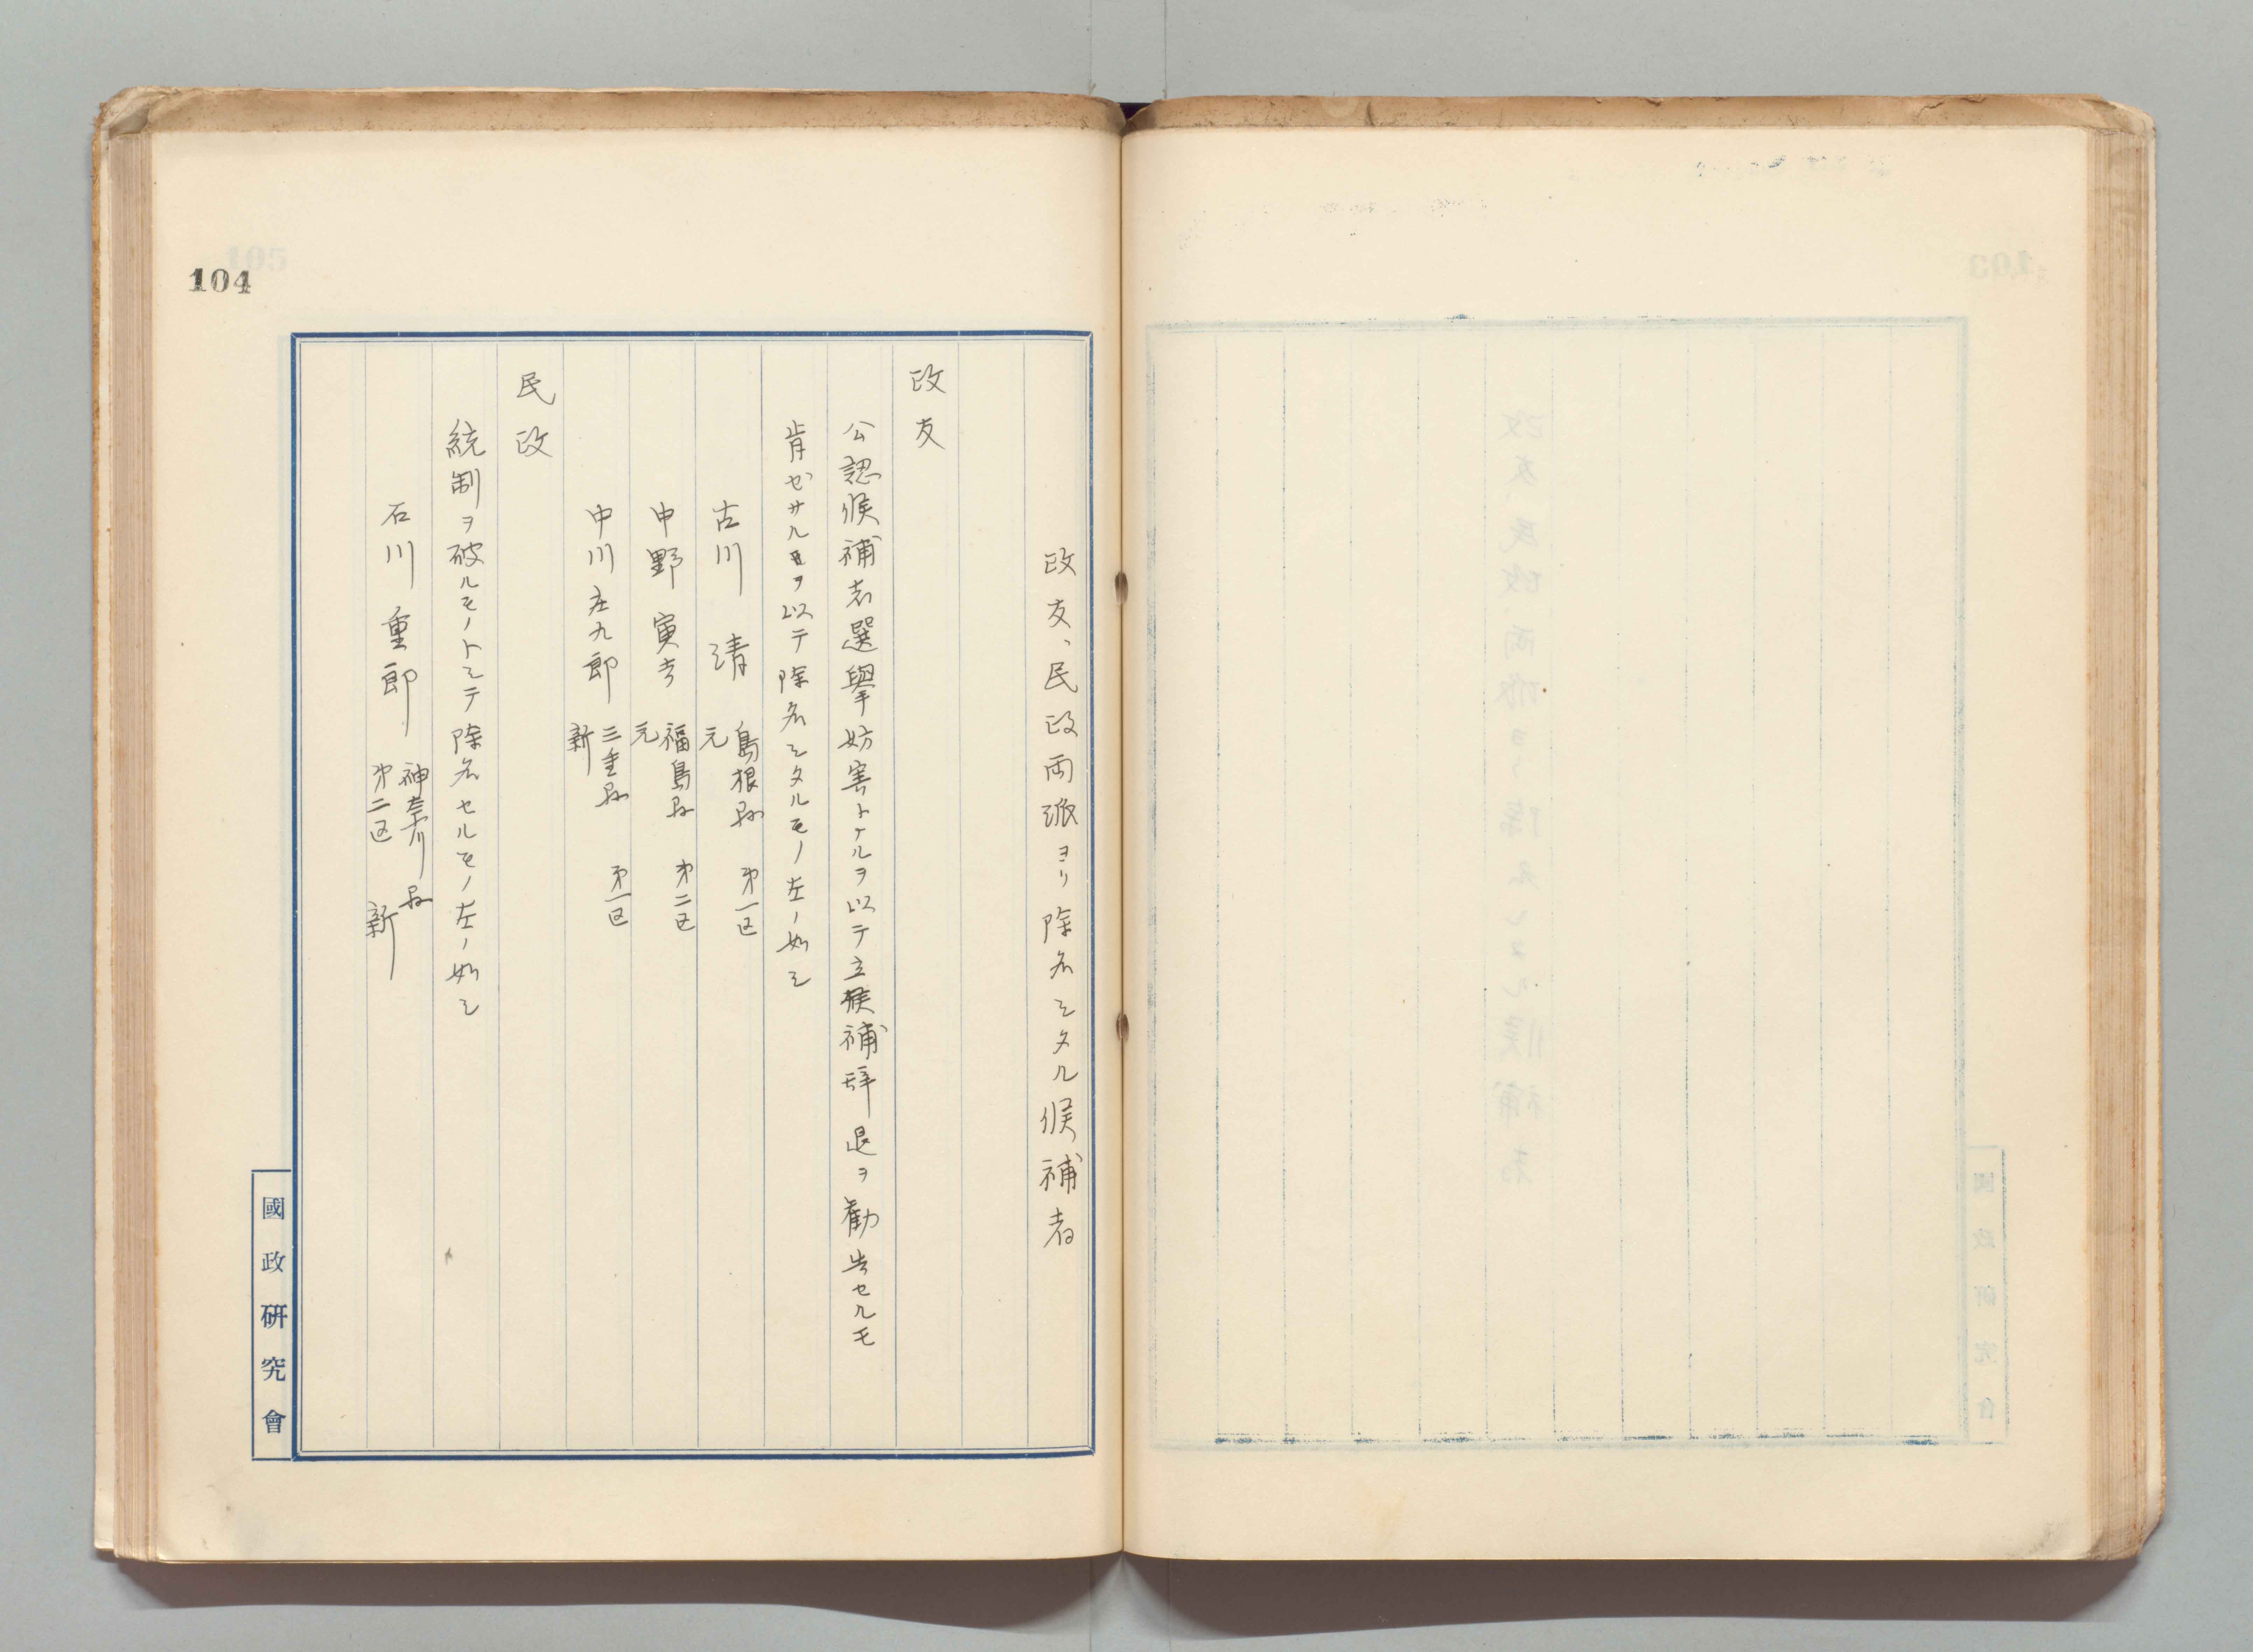 政友、民政両派ヨリ除名シタル候補者
政友
公認候補者選擧妨害トナルヲ以テ立候補辞退ヲ勧告セルモ
肯ゼサルヲ以テ除名シタルモノ左ノ如シ
古川 清 島根県 第一区 元
中野寅吉 福島県 第二区 元
中川庄九郎 三重県 第一区 新
民政
統制ヲ破ルモノトシテ除名セルモノ左ノ如シ
石川重郎 神奈川県 第二区 新
104
國政研究會